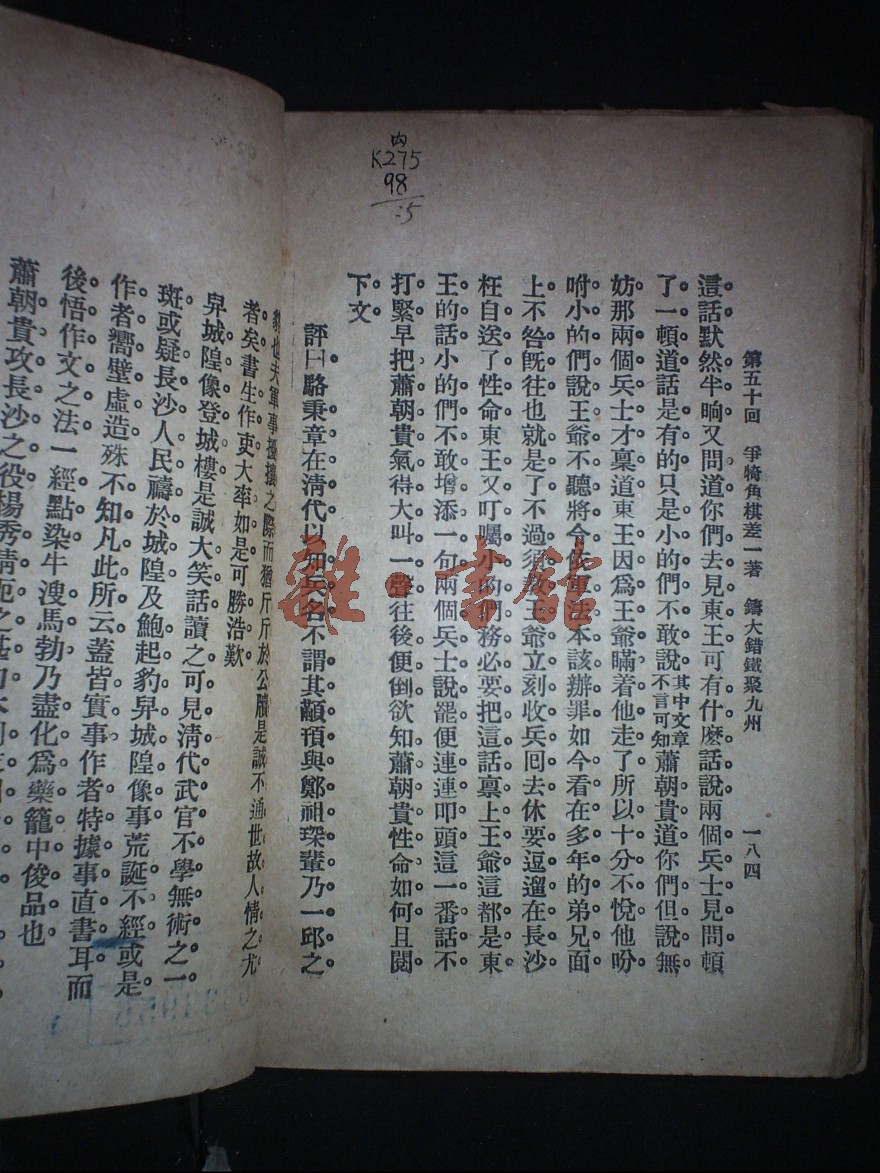 内
K275
98
:5
第五十回　爭犄角棋差一著　鑄大錯鐵聚九州　一八四
這話默然半晌又問道你們去見東王可有什麽話說兩個兵士見問頓
了一頓道話是有的只是小的們不敢說其中文章不言可知蕭朝貴道你們但說無
妨那兩個兵士才稟道東王因爲王爺瞞着他走了所以十分不悅他吩
咐小的們說王爺不聽將令依軍法本該辦罪如今看在多年的弟兄面
上不咎旣往也就是了不過須敎王爺立刻收兵囘去休要逗遛在長沙
枉自送了性命東王又叮囑小的們務必要把這話稟上王爺這都是東
王的話小的們不敢增添一句兩個兵士說罷便連連叩頭這一番話不
打緊早把蕭朝貴氣得大叫一聲往後便倒欲知蕭朝貴性命如何且閱
下文
評曰駱秉章在清代以知兵名不謂其顢頇與鄭祖琛輩乃一邱之
貉也夫軍事擾攘之際而猶斤斤於公牘是誠不通世故人情之尤
者矣書生作吏大率如是可勝浩歎
舁城隍像登城樓是誠大笑話讀之可見清代武官不學無術之一
斑或疑長沙人民禱於城隍及鮑起豹舁城隍像事荒誕不經或是
作者嚮壁虛造殊不知凡此所云蓋皆實事作者特據事直書耳而
後悟作文之法一經點染牛溲馬勃乃盡化爲藥籠中俊品也
蕭朝貴攻長沙之役楊秀清扼之甚力
雜·書館